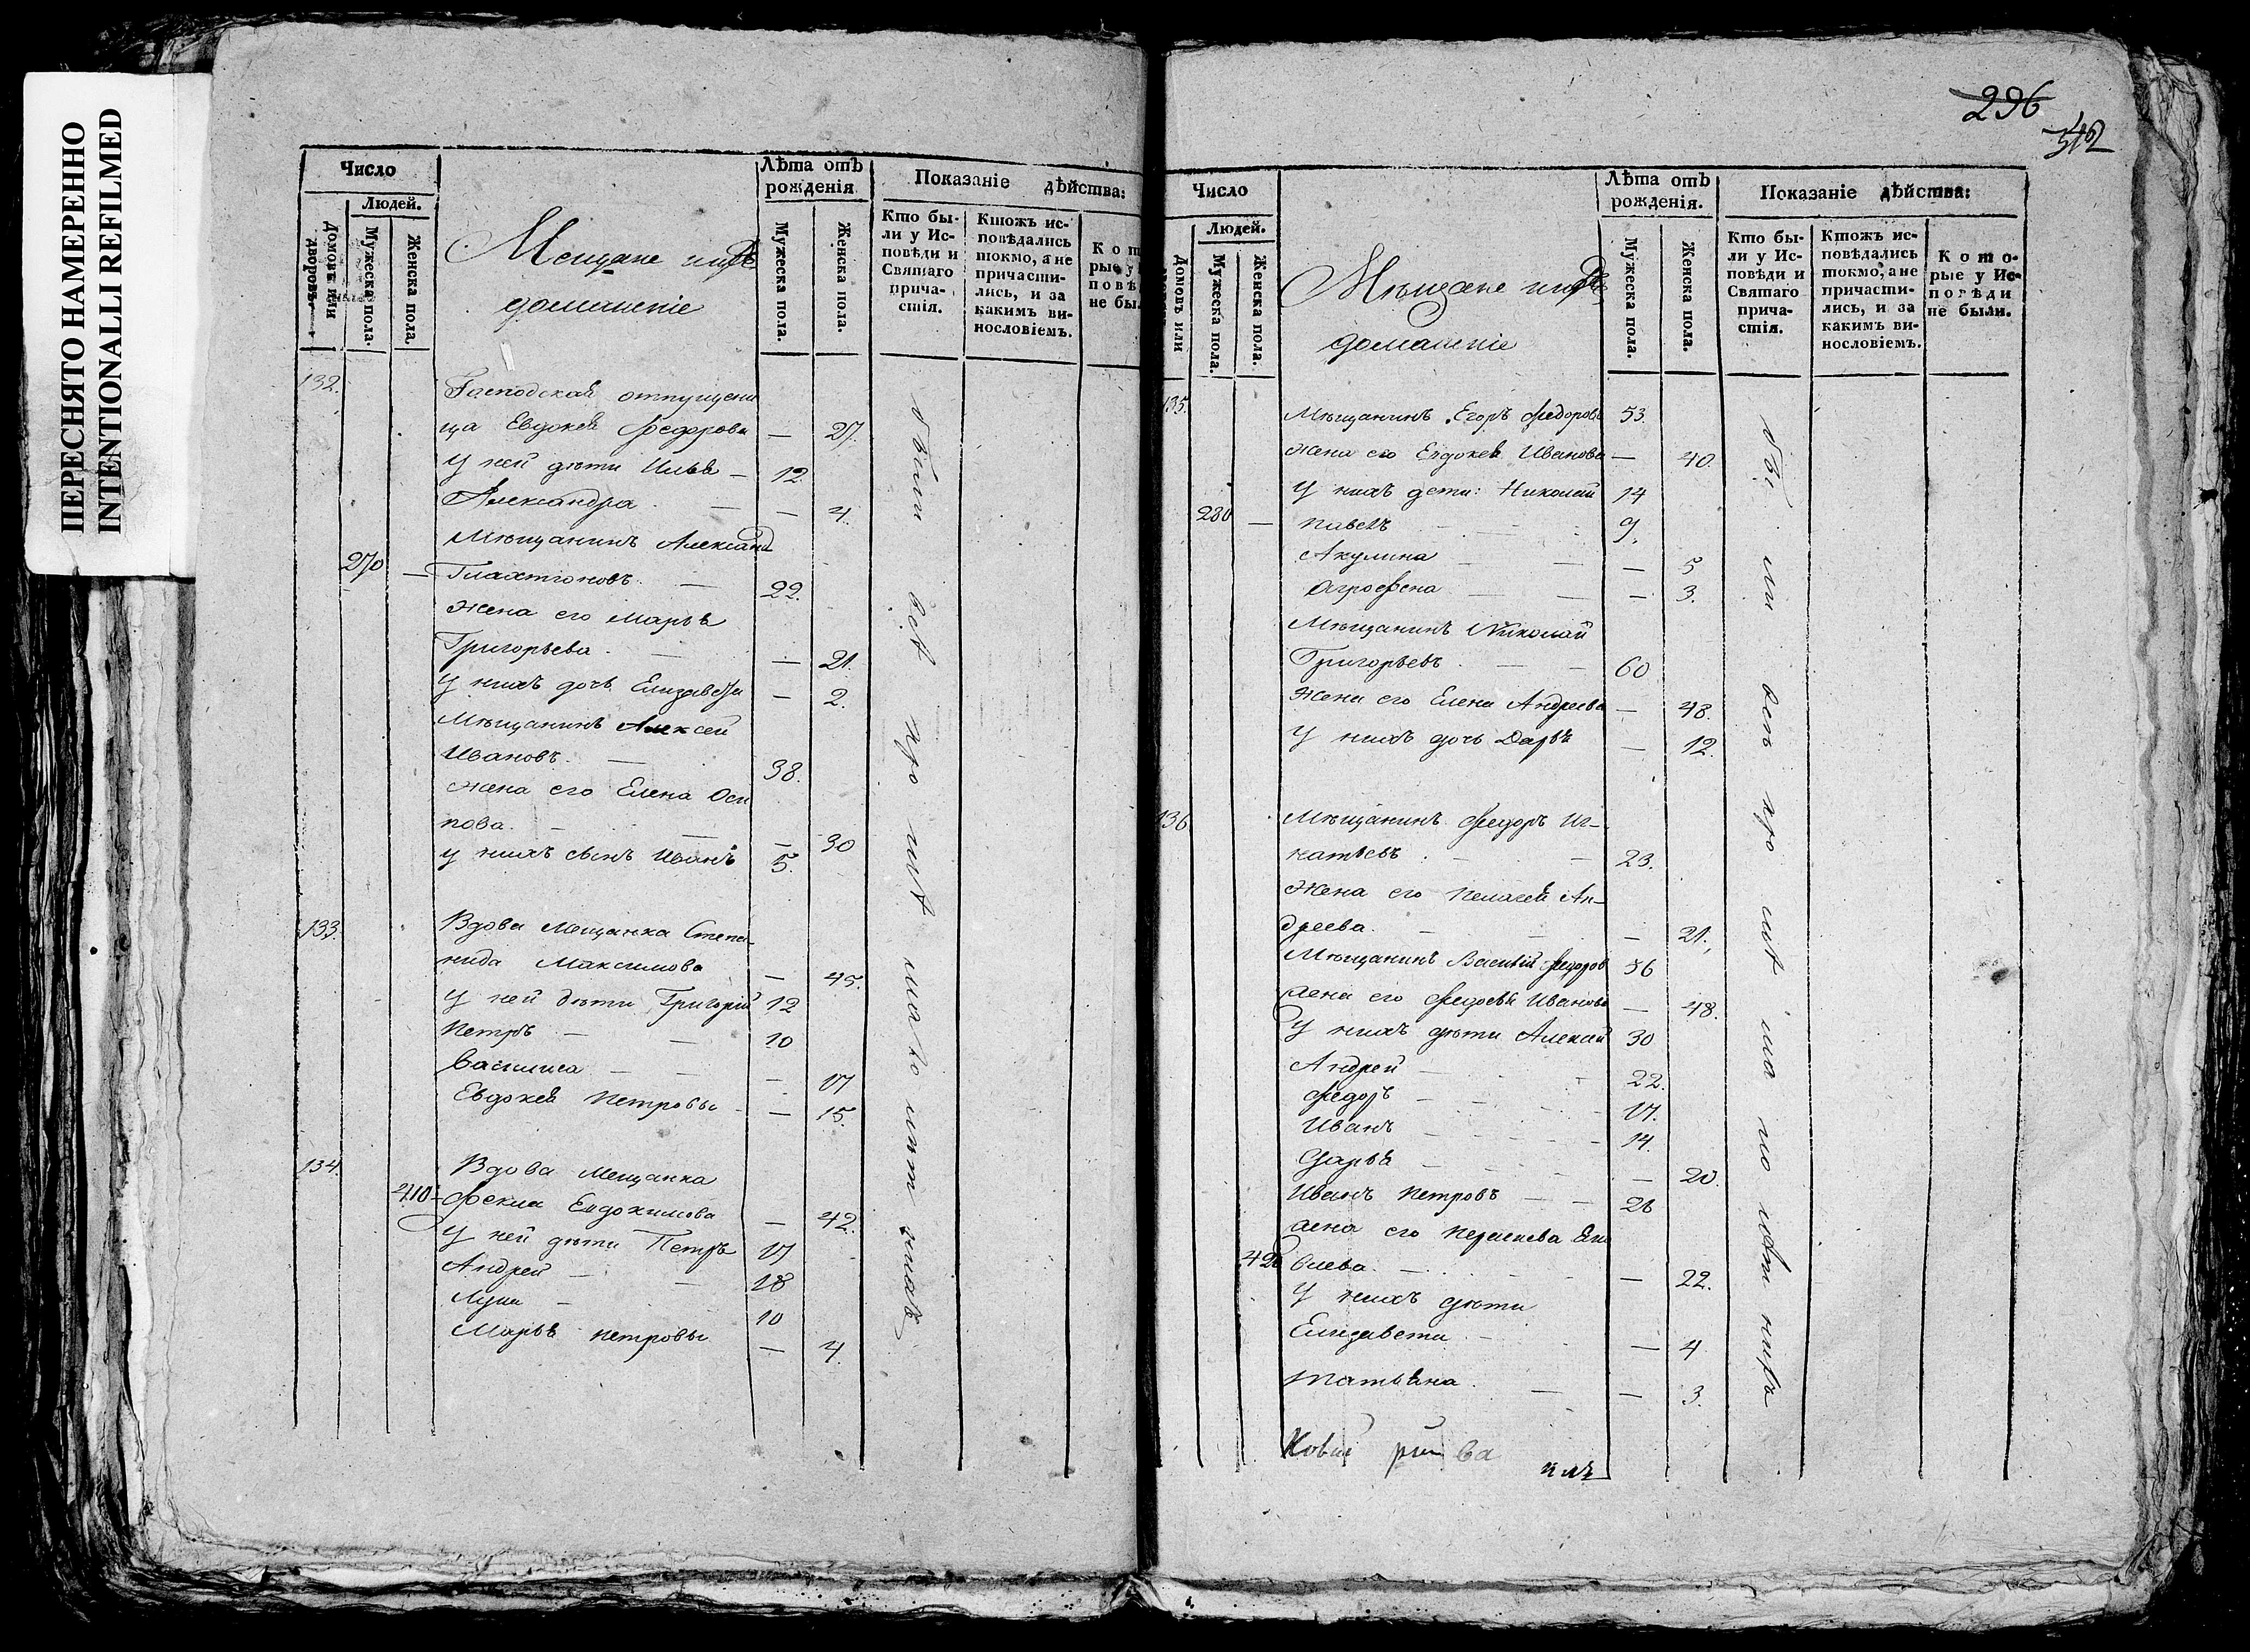 ПЕРЕСНЯТО НАМЕРЕННО
INTENTIONALLI REFILMED
Число
Людей.
Домовъ или дворовъ.
Мужеска пола.
Женска пола
Мещане
домашніе
Лѣта отъ рожденія
Мужеска пола.
Женска пола.
Показаніе дѣйства:
Кто бы-
ли у Ис-
повѣди и
Святаго
прича-
стія.
Ктожъ ис-
повѣдались
токмо, а не
причасти-
лись, и за
какимъ ви-
нословіемъ.
Кот
рые у
повѣ
не бы.
132. Господская отпущени
ца Евдокея Федорова — 27.
у ней дѣти Илья — 12
Александра — — 4.
Мѣщанинъ Александ
270 — 22.
Жена его Марья
Григорьева — — 21.
у нихъ дочь Елизавета — 2.
Мѣщанинъ Алексей
Ивановъ — 38.
Жена его Елена Оси
пова. — — — 30
у нихъ сынъ Иванъ 5.
133. Вдова Мещанка Степа-
нида Максимова — 45.
у ней дѣти Григорій 12
Петръ — — 10
Василиса — — — 17
Евдокея Петровы — — 15.
134. Вдова Мещанка
410 — Фекла Евдокимова — 42.
у ней дѣти Петръ 17
Андрей — — 18
Лука — 10
Марья Петровы — 4.
296
312
Число
Людей.
Домовъ или
Мужеска пола.
Женска пола.
Мѣщане
домашніе
Лѣта отъ рожденія.
Мужеска пола.
Женска пола.
Показаніе дѣйства:
Кто бы-
ли у Ис-
повѣди и
Святаго
прича-
стія.
Ктожъ ис-
повѣдались
токмо, а не
причасти-
лись, и за
какимъ ви-
нословіемъ.
Кото-
рые у Ис-
повѣди
не были.
135. Мѣщанинъ Егоръ Федоровъ 53.
Жена его Евдокея Иванова — 40.
У нихъ дети: Николай 14
280 — Павелъ 9.
Акулина — — — 5
Агрофена — — — 3.
Мѣщанинъ Николай
Григорьевъ — — 60
Жена его Елена Андреева — 48.
У нихъ дочь Дарья — 12.
136. Мѣщанинъ Федоръ Иг-
натьевъ — — 23.
Жена его Пелагея Ан-
дреева. — — — 21.
Мѣщанинъ Василій Федоров 56
Жена его Федосья Иванова — 48.
У нихъ дѣти Алексей 30
Андрей — 22.
Федоръ — — 17.
Иванъ — 14.
Дарья — — 20.
Иванъ Петровъ — — 26
Жена его
420 — — 22.
У нихъ дѣти
Елизавета — — 4
Татьяна. — — 3.